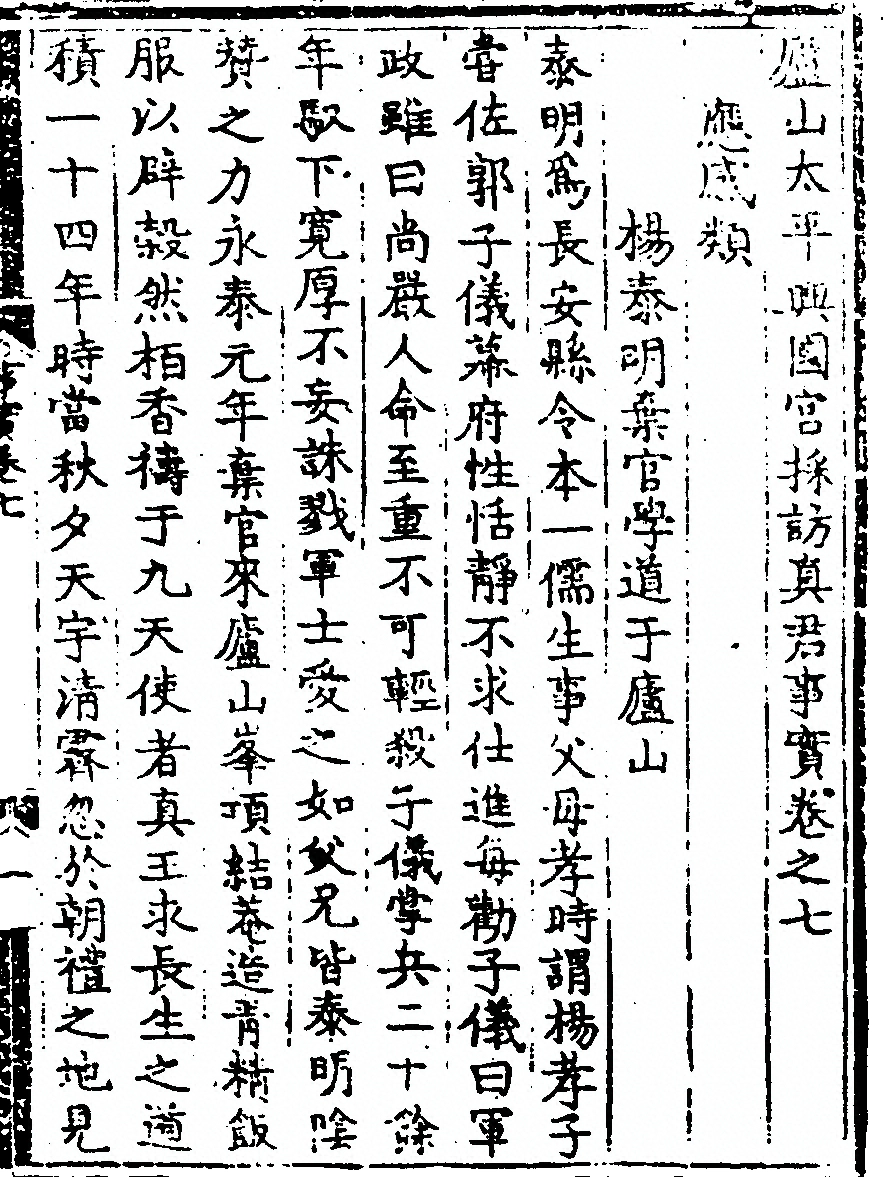 廬山太平興國宮採訪真君事實卷之七
應感類
楊泰明棄官學道于廬山
泰明爲長安縣令本一儒生事父母孝時謂楊孝子
嘗佐郭子儀幕府性恬靜不求仕進每勸子儀曰軍
政雖曰尚嚴人命至重不可輕殺子儀掌兵二十餘
年馭下寬厚不妄誅戮軍士愛之如父兄皆泰明陰
贊之力永泰元年棄官來廬山峯頂結菴造青精飯
服以辟糓然栢香禱于九天使者真王求長生之道
積一十四年時當秋夕天宇清霽忽於朝禮之地見
事實卷七
興
一